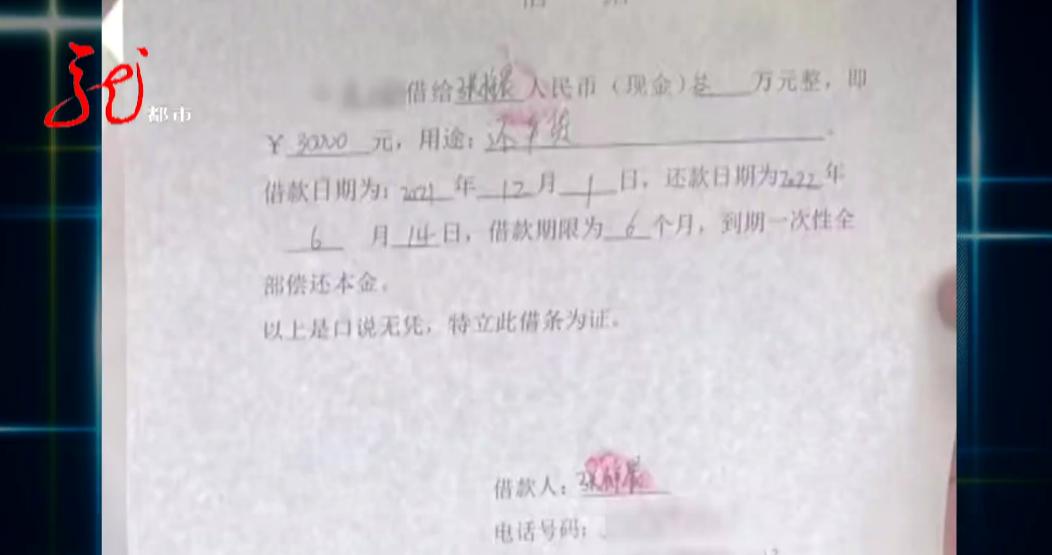 都市
借给 人民币（现金）叁 万元整，即
￥30000元，用途：还车贷.
借款日期为：2021年12月1日，还款日期为2022年
6月14日，借款期限为6个月，到期一次性全
部偿还本金。
以上是口说无凭，特立此借条为证。
借款人：
电话号码：